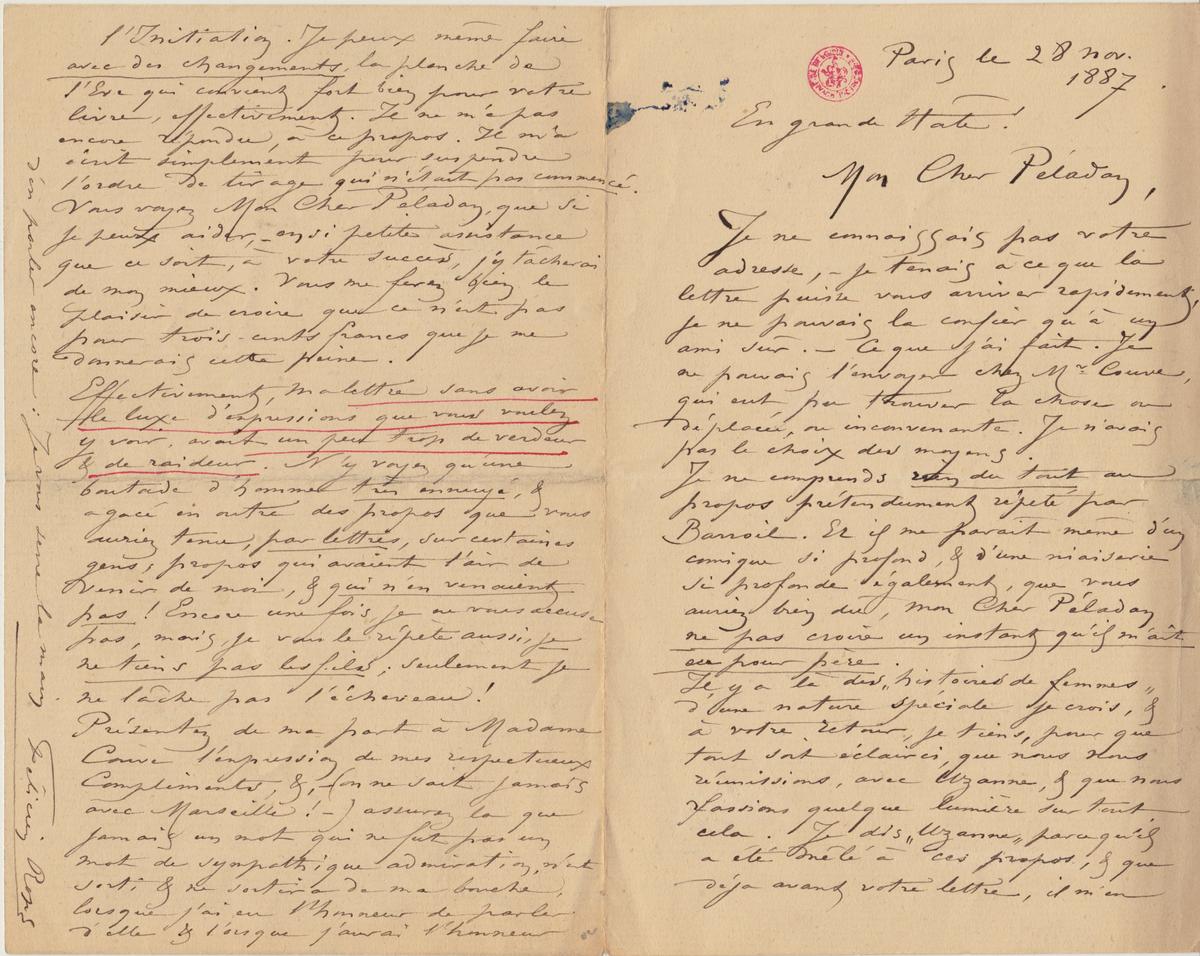 Paris le 28 nov.
1887.
En grande Hâte !
Mon Cher Péladan,
Je ne connaissais pas votre
adresse, – je tenais à ce que la
lettre puisse vous arriver rapidement,
je ne pouvais la confier qu'à un
ami sûr. – Ce que j'ai fait. Je
ne pouvais l'envoyer chez Mr. Couve,
qui eut pu trouver la chose ou
déplacée, ou inconvenante. Je n'avais
pas le choix des moyens.
Je ne comprends rien du tout au
propos prétendument répété par
Barroil. Et il me parait même d'un
comique si profond, & d'une niaiserie
si profonde également, que vous
auriez bien dû, mon Cher Péladan
ne pas croire un instant qu'il m'ait
eu pour père.
Il y a là des „histoires de femmes„
d'une nature spéciale je crois, &
à votre retour, je tiens, pour que
tout soit éclairci, que nous nous
réunissions, avec Uzanne, & que nous
fassions quelque lumière sur tout
cela. Je dis „Uzanne„ parcequ'il
a été mêlé à ces propos, & que
déja avant votre lettre, il m'en
l'Initiation. Je peux même faire
avec des changements, la planche de
l'Eve qui convient fort bien pour votre
livre, effectivement. Il ne m'a pas
encore répondu, à ce propos. Il m'a
écrit simplement pour suspendre
l'ordre de tirage qui n'était pas commencé.
Vous voyez Mon Cher Péladan, que si
je peux aider, en si petite assistance
que ce soit, à votre succès, j'y tâcherai
de mon mieux. Vous me ferez bien le
plaisir de croire que ce n'est pas
pour trois-cents francs que je me
donnerais cette peine.
Effectivement, ma lettre sans avoir
le luxe d'expressions que vous voulez
y voir, avait un peu trop de verdeur
& de raideur. N'y voyez qu'une
boutade d'homme très ennuyé, &
agacé en outre des propos que vous
auriez tenu, par lettres, sur certaines
gens, propos qui avaient l'air de
venir de moi, & qui n'en venaient
pas ! Encore une fois, je ne vous accuse
pas, mais, je vous le répète aussi, je
ne tiens pas les fils, seulement je
ne lâche pas l'écheveau !
Présentez de ma part à Madame
Couve l'expression de mes respectueux
Compliments, &, (on ne sait jamais
avec Marseille ! –) assurez la que
jamais un mot qui ne fût pas un
mot de sympathique admiration, n'est
sorti & ne sortira de ma bouche,
lorsque j'ai eu l'honneur de parler
d'elle & lorsque j'aurai l'honneur
d'en parler encore. Je vous serre la main Félicien Rops